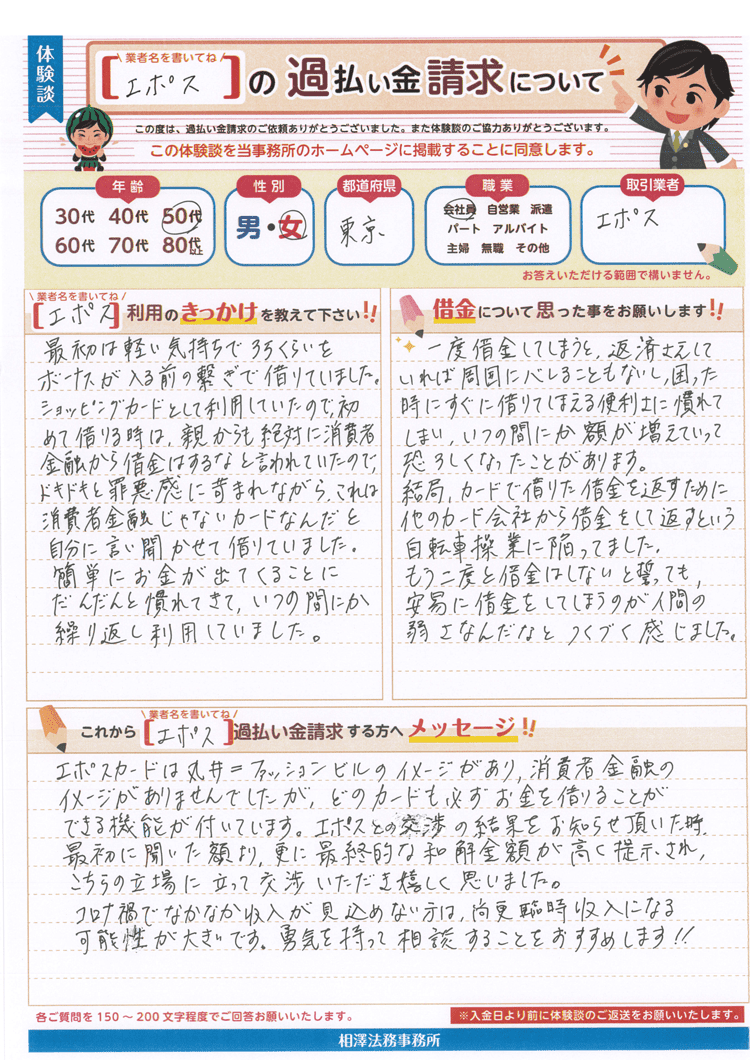 体験談
業者名を書いてね
[エポス]の過払い金請求について
この度は、過払い金請求のご依頼ありがとうございました。また体験談のご協力ありがとうございます。
この体験談を当事務所のホームページに掲載することに同意します。
年齢
30代 40代 50代
60代 70代 80代以上
性別
男・女
都道府県
東京
職業
会社員 自営業 派遣
パート アルバイト
主婦 無職 その他
取引業者
エポス
お答えいただける範囲で構いません。
業者名を書いてね
[エポス]利用のきっかけを教えて下さい!!
最初は軽い気持ちで3万くらいを
ボーナスが入る前の繋ぎで借りていました。
ショッピングカードとして利用していたので、初
めて借りる時は、親からも絶対に消費者
金融から借金はするなと言われていたので、
ドキドキと罪悪感に苛まれながら、これは
消費者金融じゃないカードなんだと
自分に言い聞かせて借りていました。
簡単にお金が出てくることに
だんだんと慣れてきて、いつの間にか
繰り返し利用していました。
借金について思った事をお願いします!!
一度借金してしまうと、返済さえして
いれば周囲にバレることもないし、困った
時にすぐに借りてしまえる便利さに慣れて
しまい、いつの間にか額が増えていって
恐ろしくなったことがあります。
結局、カードで借りた借金を返すために
他のカード会社から借金をして返すという
自転車操業に陥ってました。
もう二度と借金はしないと誓っても、
安易に借金をしてしまうのが人間の
弱さなんだなと つくづく感じました。
業者名を書いてね
これから[エポス]過払い金請求する方へメッセージ!!
エポスカードは丸井=ファッションビルのイメージがあり、消費者金融の
イメージがありませんでしたが、どのカードも必ずお金を借りることが
できる機能が付いています。エポスとの交渉の結果をお知らせ頂いた時、
最初に聞いた額より、更に最終的な和解金額が高く提示され、
こちらの立場に立って交渉いただき嬉しく思いました。
コロナ禍でなかなか収入が見込めない方は、尚更臨時収入になる
可能性が大きいです。勇気を持って相談することをおすすめします!!
各ご質問を150~200文字程度でご回答お願いいたします。
※入金日より前に体験談のご返送をお願いいたします。
相澤法務事務所